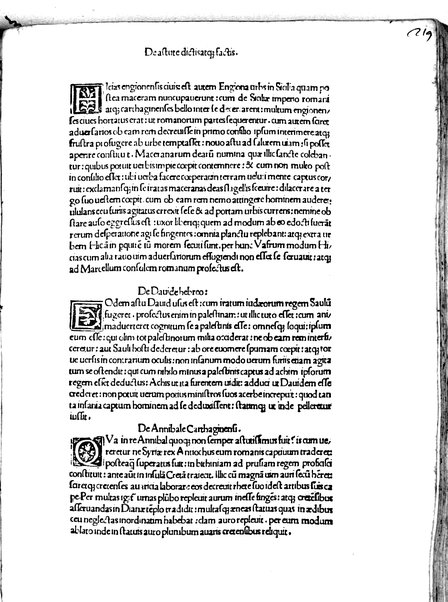 219
De astute dictis atq; factis.
Icias engionensis ciuis: est autem Engiona urbs in Sicilia quam po
stea maceram nuncupauerunt: cum de Siciliæ imperio romani
atq; carthaginenses bello inter se decer arent: multum engionen
ses ciues hortatus erat: ut romanorum partes sequerentur. cum autem sciret
aduersarios ob eam rem decreuisse in primo consilio ipsum interimere: atq;
frustra profugere ab urbe temptasset: nouo astu ad salutem uiam: si posset
aperire constituit. Macenarum dearū numina quæ illic sancte coleban
tur: quibus poterat uerbis impie cœpit contemnere: & cum non multo post
in consilio esset: ubi uerba facere cœperat in terram ueluti mente captus cor
ruit: exclamansq; in se iratas maceranas deas flagellis sæuire: dilacerare a ter
go suo uestem cœpit. cum ob eam rem nemo attingere hominem auderet:
ululans ceu furiis agitatus erexit sese & ad portam urbis currens: nemine ob
stare auso egressus est: uxor
rerum desperatione agi se fingentes: omnia planctu replebant: atq; extra ur
bem Hiciam morem secuti sunt. per hunc Vafrum modum Hi
cias cum alia ratio uim aduersariorum effugiendi non esset se seruauit: atq;
ad Marcellum consulem romanum profectus est.
De Dauide hebreo:
Odem astu Dauid usus est: cum iratum iudæorum regem Saulū
fugeret. profectus enim in palestinam: ut illic tuto esset: cum ani
maduerteret cognitum se a palestinis esse: omnesq; loqui: ipsum
eum esse: qui olim tot palestinorum milia occiderat: ne ob eam rem interfi
ceretur: aut Sauli hosti dederetur: ab ore euomere spumam cœpit: atq; tor
ue uersis in contrarium oculis: non insanum modo uerum furiis etiam agita
tum se ostendit: qui cum nihilo minus a palestinis captus ad achim ipsorum
regem esset deductus: Achis ut ita furentem uidit: adduci ut Dauidem esse
crederet: non potuit uerum potius ministros suos acerbe increpuit: quod tan
ta insania captum hominem ad se deduxissent: statimq; ut inde pelleretur
iussit.
De Annibale Carthaginensi.
VA in re Annibal quoq; non semper astutissimus fuit: is cum ue
reretur ne Syriæ rex Antiochus eum romanis captiuum traderet
posteaq̄ superatus fuit: in bithiniam ad prusiam regem proficisci
constituit: ante aūt in insulā Cretā traiecit. illic cū magnā uim auri secū hēret
atq; cretenses
pe. Per multas igit̄ urnas plūbo repleuit aurum inesse fingēs: atq; cretēsibus
asseruandas in Dianæ tēplo tradidit: multasq; æneas statuas quas in ædibus
ceu neglectas inordinatim habebat: clam auro repleuit. per eum modum
ablato inde in statuis auro plumbum auaris cretensibus reliquit.